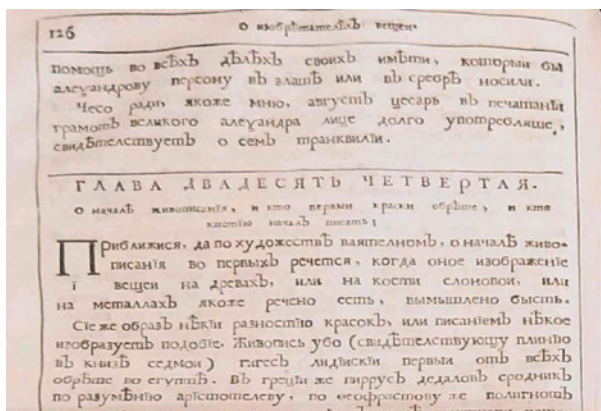 126
О изобрѣтателѣхъ вещеи.
помощь во всѣхъ дѣлѣхъ своихъ имѣти, которыи бы
алеѯандрову персону въ златѣ или въ сребрѣ носили.
Чесо ради, якоже мню, августъ цесарь въ печатанїи
грамотъ великого алеѯандра лице долго употребляше,
свидѣтелствуетъ о семъ транквилїи.
ГЛАВА ДВАДЕСЯТЬ ЧЕТВЕРТАЯ.
О началѣ живописанїя, и кто первыи краски обрѣте, и кто
кистїю началъ писать;
Приближися, да по художествѣ ваятелномъ, о началѣ живо-
писанїя во первыхъ речется, когда оное изображенїе
ї вещеи на древахъ, или на кости слоновои, или
на металлахъ якоже речено есть, вымышлено бысть.
Сїе же образъ нѣкїи разностїю красокъ, или писанїемъ нѣкое
изобразуетъ подобїе. Живопись убо (свидѣтелствующу плинїю
въ книзѣ седмои) гигесъ лидїискїи первыи отъ всѣхъ
обрѣте во егуптѣ. Въ грецїи же пиррусъ дедаловъ сродникъ
по разумѣнїю арїстотелеву, по ѳеофрастову же полигнотъ